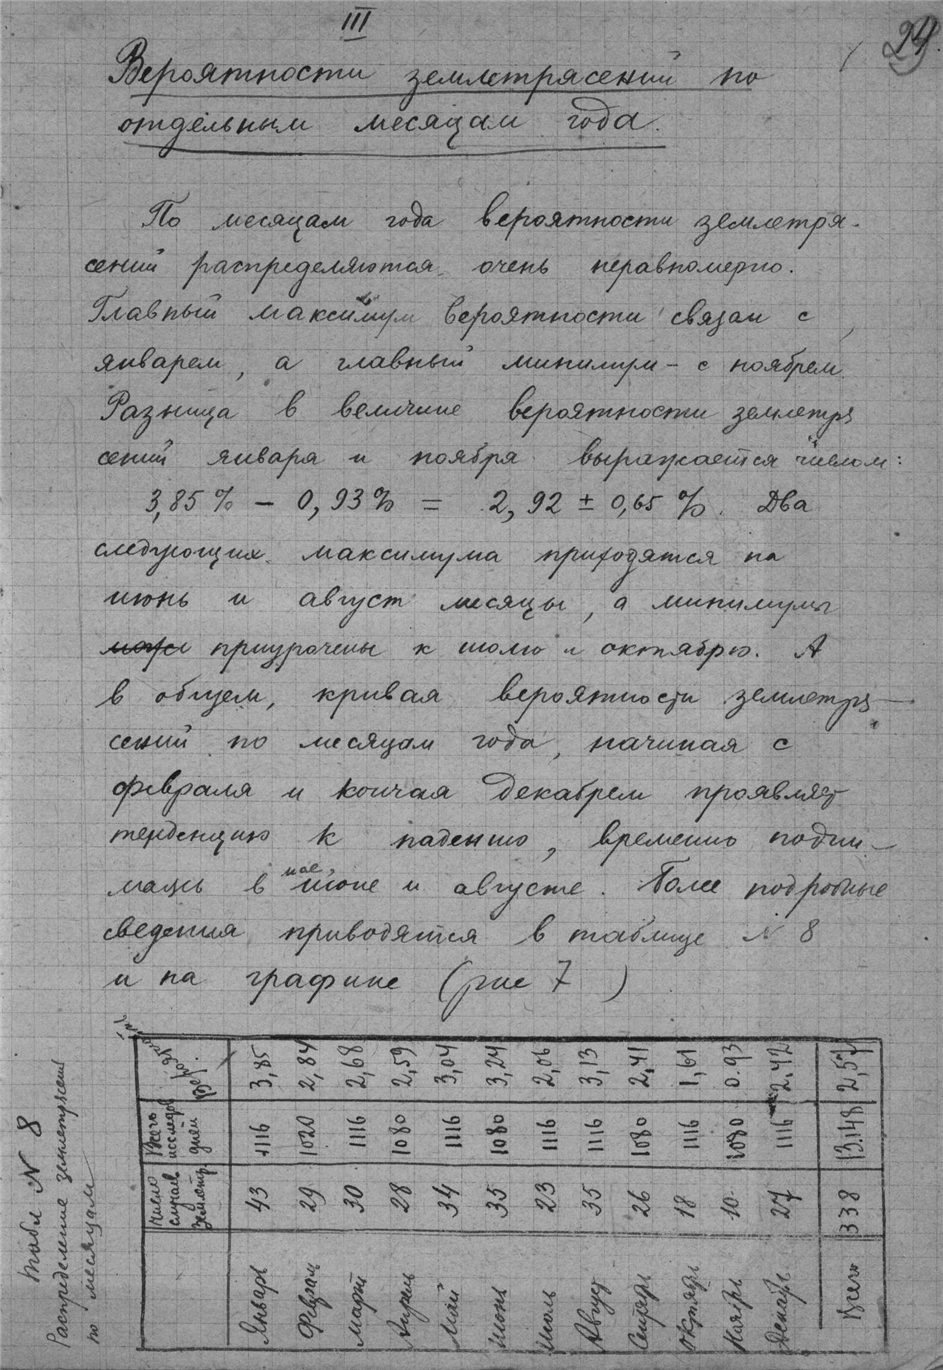 III
24
Вероятности землетрясений по
отдельным месяцам года.
По месяцам года вероятности землетря-
сений распределяются очень неравномерно.
Главный максимум вероятности связан с
январем, а главный минимум – с ноябрем
Разница в величине вероятности землетря
сений января и ноября выражается числом:
3,85% – 0,93% = 2,92 ± 0,65%. Два
следующих максимума приходятся на
июнь и август месяцы, а минимумы
приурочены к июлю и октябрю. А
в общем, кривая вероятности землетря-
сений по месяцам года, начиная с
февраля и кончая декабрем проявляет
тенденцию к падению, временно подни-
маясь в мае, июне и августе. Более подробные
сведения приводятся в таблице N 8
и на графике (рис 7 )
Табл N 8
Распределение землетрясений
по месяцам
Число случаев землетр. Всего исследов дней Вер.
Январь 43 1116 3,85
Феврал 29 1020 2,84
Март 30 1116 2,68
Апрель 28 1080 2,59
Май 34 1116 3,04
Июнь 35 1080 3,24
Июль 23 1116 2,06
Август 35 1116 3,13
Сентябрь 26 1080 2,41
Октябрь 18 1116 1,61
Ноябрь 10 1080 0.93
Декабрь 27 1116 2.42
Всего 338 13.148 2,57